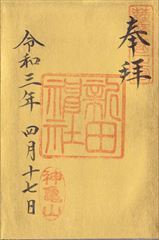 奉拝
新田
神社
神亀山
令和三年 四月十七日